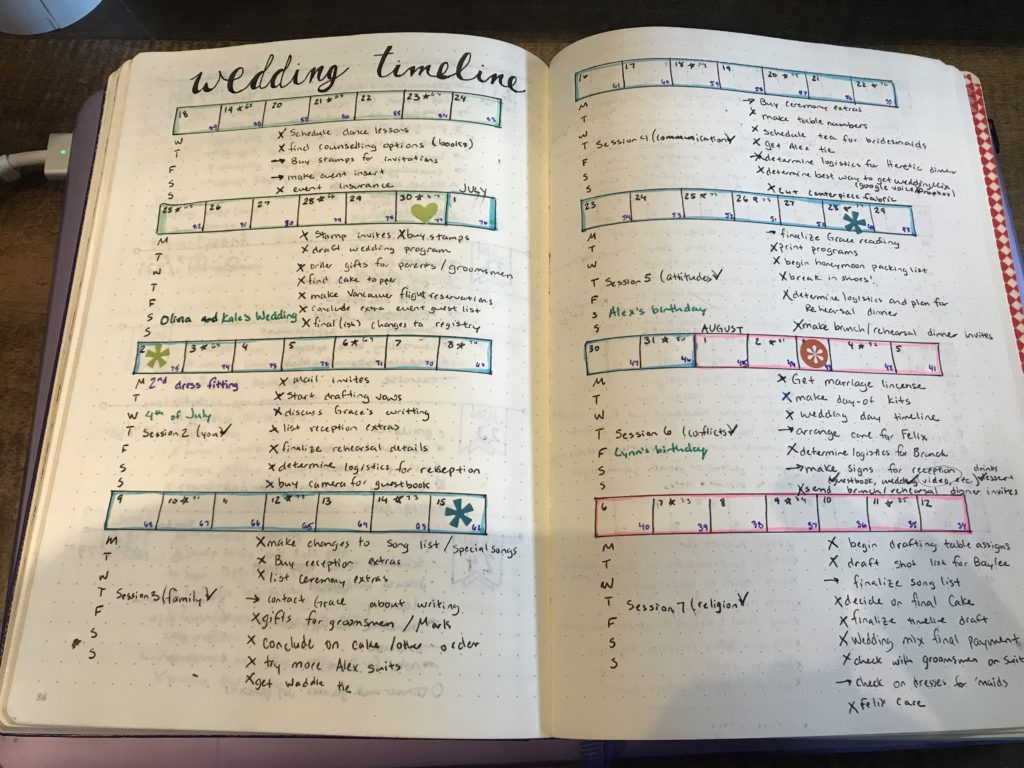 wedding timeline
18 19 20 21 22 23 24
M
T
W
T
F
S
S
X Schedule dance lessons
X find counselling options (books)
→ Buy stamps for invitations
→ make event insert
X event insurance
JULY
25 26 27 28 29 30 1
82 81 80 79 77 76
M
T
W
T
F
S
S
X Stamp invites X buy stamps
X draft wedding program
X order gifts for parents/groomsmen
X find cake topper
X make Vancouver flight reservations
X conclude extra event guest list
Olivia and Kale's Wedding
X final(ish) changes to registry
2 3 4 5 6 7 8
75 74 73 72 71 70 69
M
T
W
T
F
S
S
2nd dress fitting
4th of July
Session 2 (you)
X mail invites
X Start drafting vows
X discuss Grace's writting
X list reception extras
X finalize rehearsal details
X determine logistics for reception
X buy camera for guestbook
9 10 11 12 13 14 15
68 67 66 65 64 63 62
M
T
W
T
F
S
S
Session 3 (family)
X make changes to song list/special songs
X Buy reception extras
X list ceremony extras
→ contact Grace about writing
X gifts for groomsmen / Mark
X conclude on cake/other order
X try more Alex suits
X get Waddle tie
86
16 17 18 19 20 21 22
61 60 59 58 57 56 55
M
T
W
T
F
S
S
Session 4 (communication)
→ Buy ceremony extras
X make table numbers
X schedule tea for bridesmaids
X get Alex tie
X determine logistics for Heretic dinner
X determine best way to get wedding mix
(google voice/Dropbox)
X cut centerpiece fabric
23 24 25 26 27 28 29
54 53 52 51 50
M
T
W
T
F
S
S
Session 5 (attitudes)
Alex's birthday
→ finalize Grace reading
X print programs
X begin honeymoon packing list
X break in shoes!
X determine logistics and plan for
Rehearsal dinner
X make brunch/rehearsal dinner invites
AUGUST
30 31 1 2 4 5
47 46 45 42 41
M
T
W
T
F
S
S
Session 6 (conflicts)
Lynn's birthday
X Get marriage lincense
X make day-of kits
X wedding day timeline
→ arrange care for Felix
X determine logistics for Brunch
→ make signs for reception drinks
(guestbook, wedding video, etc.) dessert
X send brunch/rehearsal dinner invites
6 7 8 9 10 11 12
40 39 38 37 36 35 34
M
T
W
T
F
S
S
Session 7 (religion)
X begin drafting table assigns
X draft shot list for Baylee
→ finalize song list
X decide on final Cake
X finalize timeline draft
X Wedding mix final payment
X check with groomsmen on suits
→ check on dresses for 'maids
X Felix Care